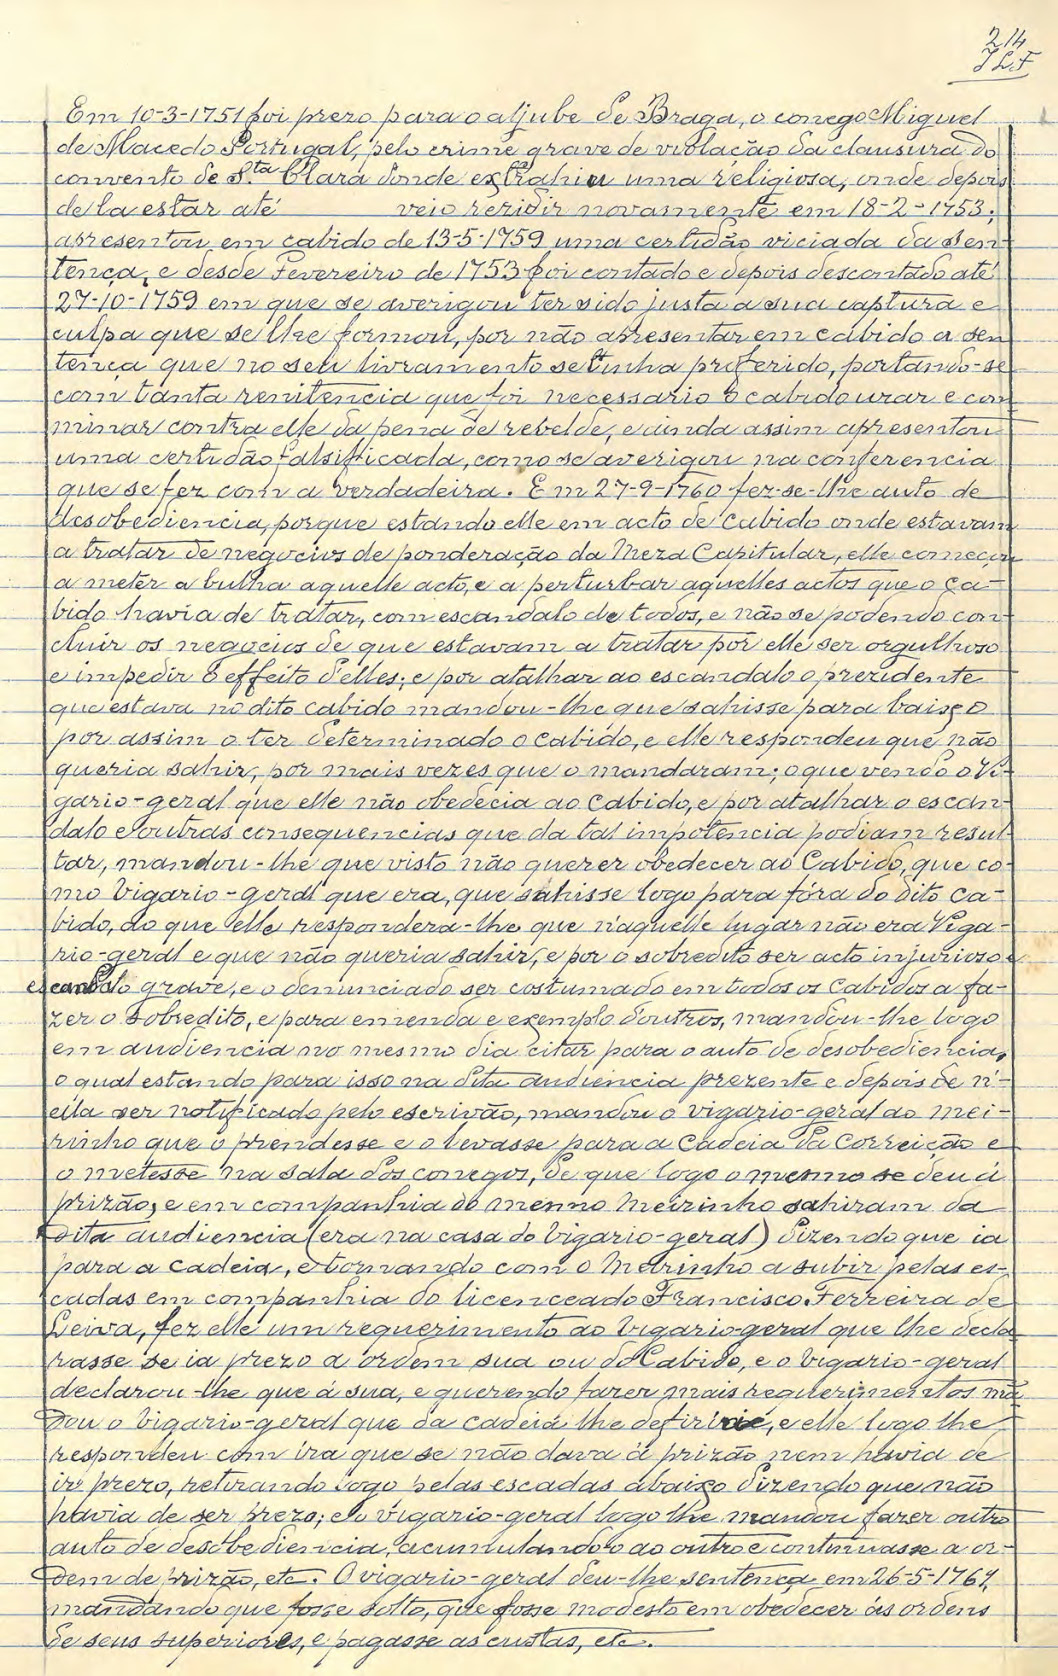 214
J L.F
Em 10-3-1751 foi prezo para o aljube de Braga, o conego Miguel
de Macedo Portugal, pelo crime grave de violação da clausura do
convento de S.ta Clara donde extrahiu uma religiosa, onde depois
de la estar até veio rezidir novamente em 18-2-1753;
apresentou em cabido de 13-5-1759 uma certidão viciada da sen-
tença, e desde Fevereiro de 1753 foi contado e depois descontado até
27-10-1759 em que se averigou ter sido justa a sua captura e
culpa que se lhe formou, por não apresentar em cabido a sen
tença que no seu livramento se tinha proferido, portando-se
com tanta renitencia que foi necessario o cabido uzar e com
minar contra elle da pena de rebelde, e ainda assim apresentou
uma certidão falsificada, como se averigou na conferencia
que se fez com a verdadeira. Em 27-9-1760 fez-se-lhe auto de
desobediencia, porque estando elle em acto de Cabido onde estavam
a tratar de negocios de ponderação da Meza Capitular, elle começou
a meter a bulha aquelle acto, e a perturbar aquelles actos que o Ca-
bido havia de tratar, com escandalo de todos, e não se podendo con-
cluir os negocios de que estavam a tratar por elle ser orgulhoso
e impedir o effeito d'elles; e por atalhar ao escandalo o prezidente
que estava no dito cabido mandou-lhe que sahisse para baixo
por assim o ter determinado o Cabido, e elle respondeu que não
queria sahir, por mais vezes que o mandaram; o que vendo o Vi-
gario-geral que elle não obedecia ao Cabido, e por atalhar o escan-
dalo e outras consequencias que da tal impotencia podiam resul-
tar, mandou-lhe que visto não querer obedecer ao Cabido, que co-
mo Vigario-geral que era, que sahisse logo para fóra do dito Ca-
bido, ao que elle respondera-lhe que n'aquelle lugar não era Viga-
rio-geral e que não queria sahir, e por o sobredito ser acto injurioso e
escandalo grave, e o denunciado ser costumado em todos os Cabidos a fa-
zer o sobredito, e para emenda e exemplo d'outros, mandou-lhe logo
em audiencia no mesmo dia citar para o auto de desobediencia,
o qual estando para isso na dita audiencia prezente e depois de n'-
ella ser notificado pelo escrivão, mandou o vigario-geral ao mei-
rinho que o prendesse e o levasse para a Cadeia da Correição e
o metesse na sala dos conegos, de que logo o mesmo se deu á
prizão, e em companhia do mesmo Meirinho sahiram da
dita audiencia (era na casa do Vigario-geral) dizendo que ia
para a cadeia, e tornando com o Meirinho a subir pelas es-
cadas em companhia do licenceado Francisco Ferreira de
Leiva, fez elle um requerimento ao Vigario-geral que lhe decla
rasse se ia prezo a ordem sua ou do Cabido, e o Vigario-geral
declarou-lhe que á sua, e querendo fazer mais requerimentos mã
dou o Vigario-geral que da cadeia lhe defiriria, e elle logo lhe
respondeu com ira que se não dava á prizão nem havia de
ir prezo, retirando logo pelas escadas abaixo dizendo que não
havia de ser prezo; e o vigario-geral logo lhe mandou fazer outro
auto de desobediencia, acumulando-o ao outro e continuasse a or-
dem de prizão, etc. O vigario-geral deu-lhe sentença em 26-5-1764,
mandando que fosse solto, que fosse modesto em obedecer ás ordens
de seus superiores, e pagasse as custas, etc.